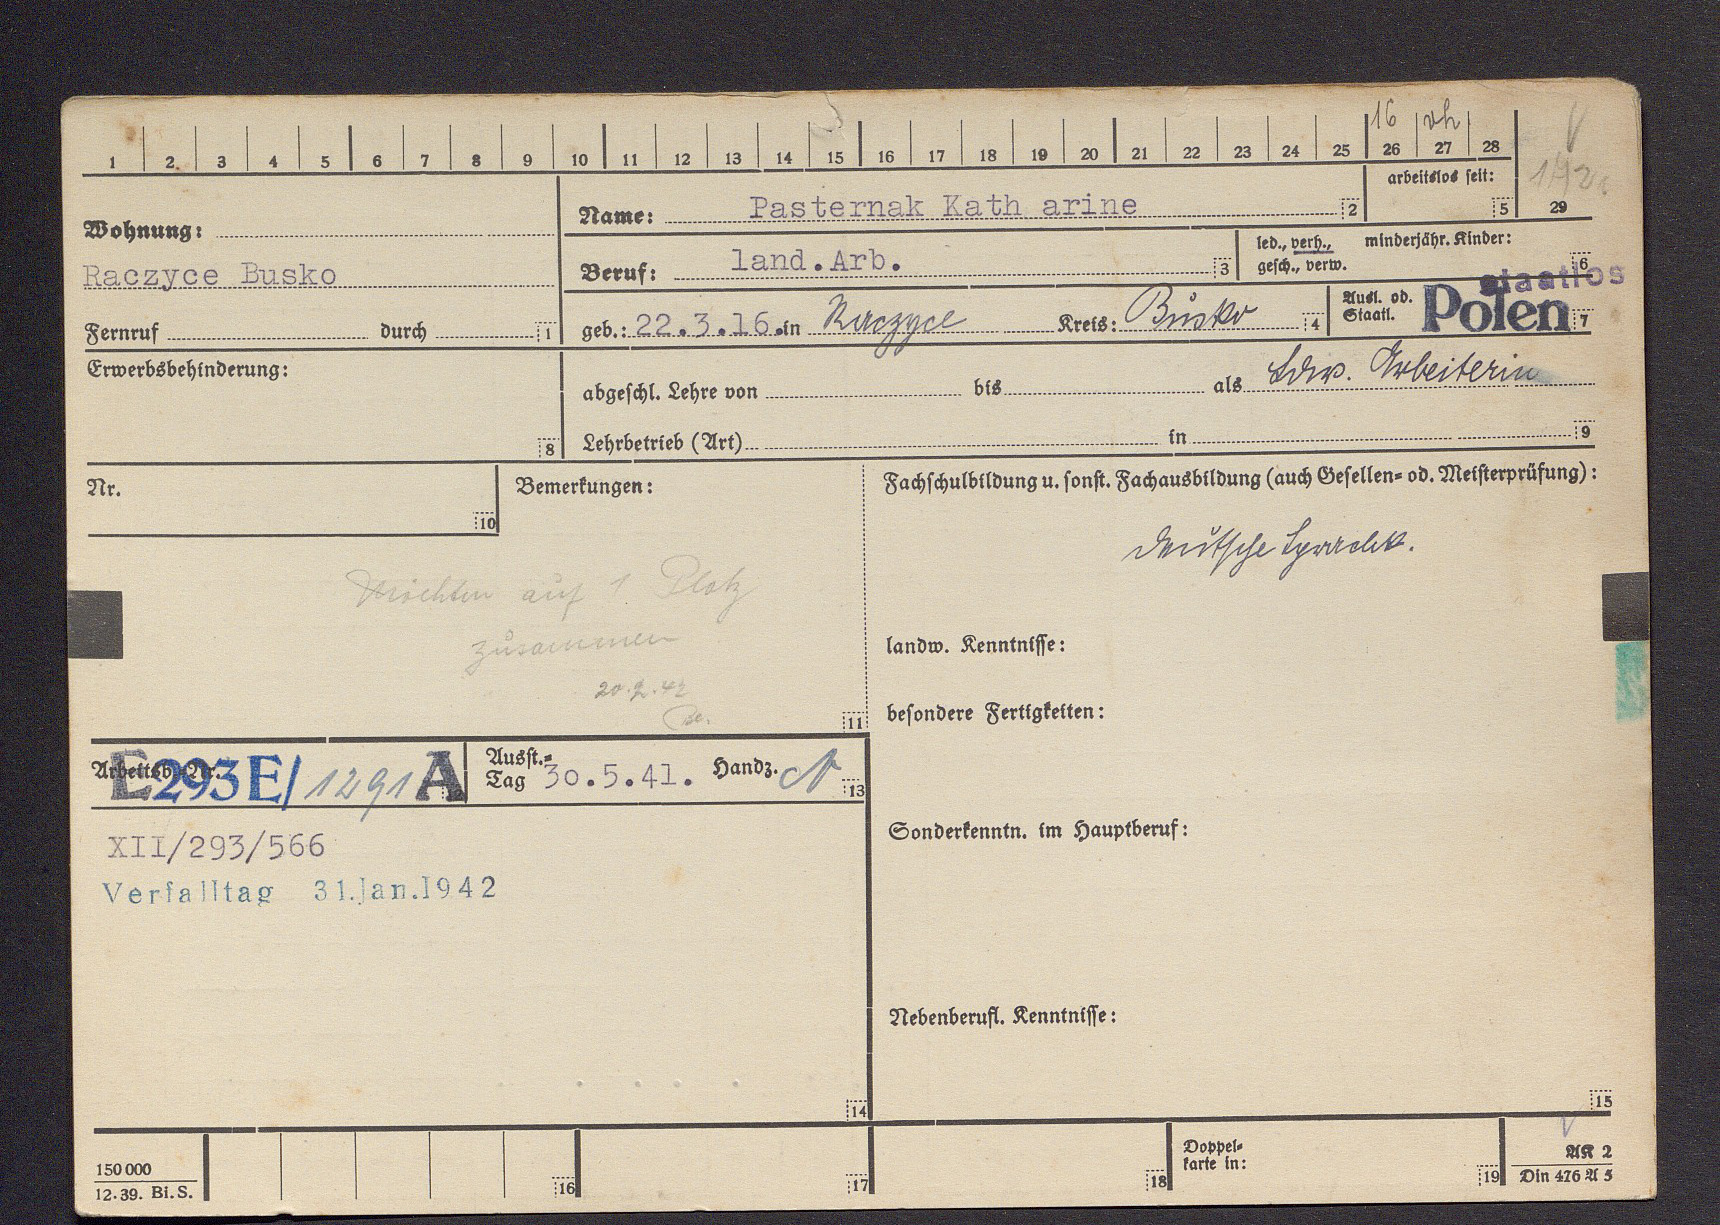 16 vh
1 2 3 4 5 6 7 8 9 10 11 12 13 14 15 16 17 18 19 20 21 22 23 24 25 26 27 28
29
arbeitslos seit: 5
Wohnung:
Raczyce Busko
Fernruf durch 1
Name: Pasternak Kath arine 2
Beruf: land.Arb. 3
led., verh., minderjähr. Kinder:
gesch., verw. 6
geb.: 22.3.16. in Raczyce Kreis: Busko 4
Ausl. od.
Staatl. Polen 7
staatlos
Erwerbsbehinderung:
8
abgeschl. Lehre von bis als Ldw. Arbeiterin
Lehrbetrieb (Art) in 9
Nr.
10
Bemerkungen:
Möchten auf 1 Platz
zusammen
20.2.42
11
Fachschulbildung u. sonst. Fachausbildung (auch Gesellen- od. Meisterprüfung):
deutsche Sprachk.
landw. Kenntnisse:
besondere Fertigkeiten:
Sonderkenntn. im Hauptberuf:
Nebenberufl. Kenntnisse:
15
Arbeitsb.-Nr. E293E/1291 A
Ausst.-
Tag 30.5.41. Handz. 13
XII/293/566
Verfalltag 31.Jan.1942
14
150 000
12.39. Bi. S.
16
17
18
Doppel-
karte in:
19
AK 2
Din 476 A 5